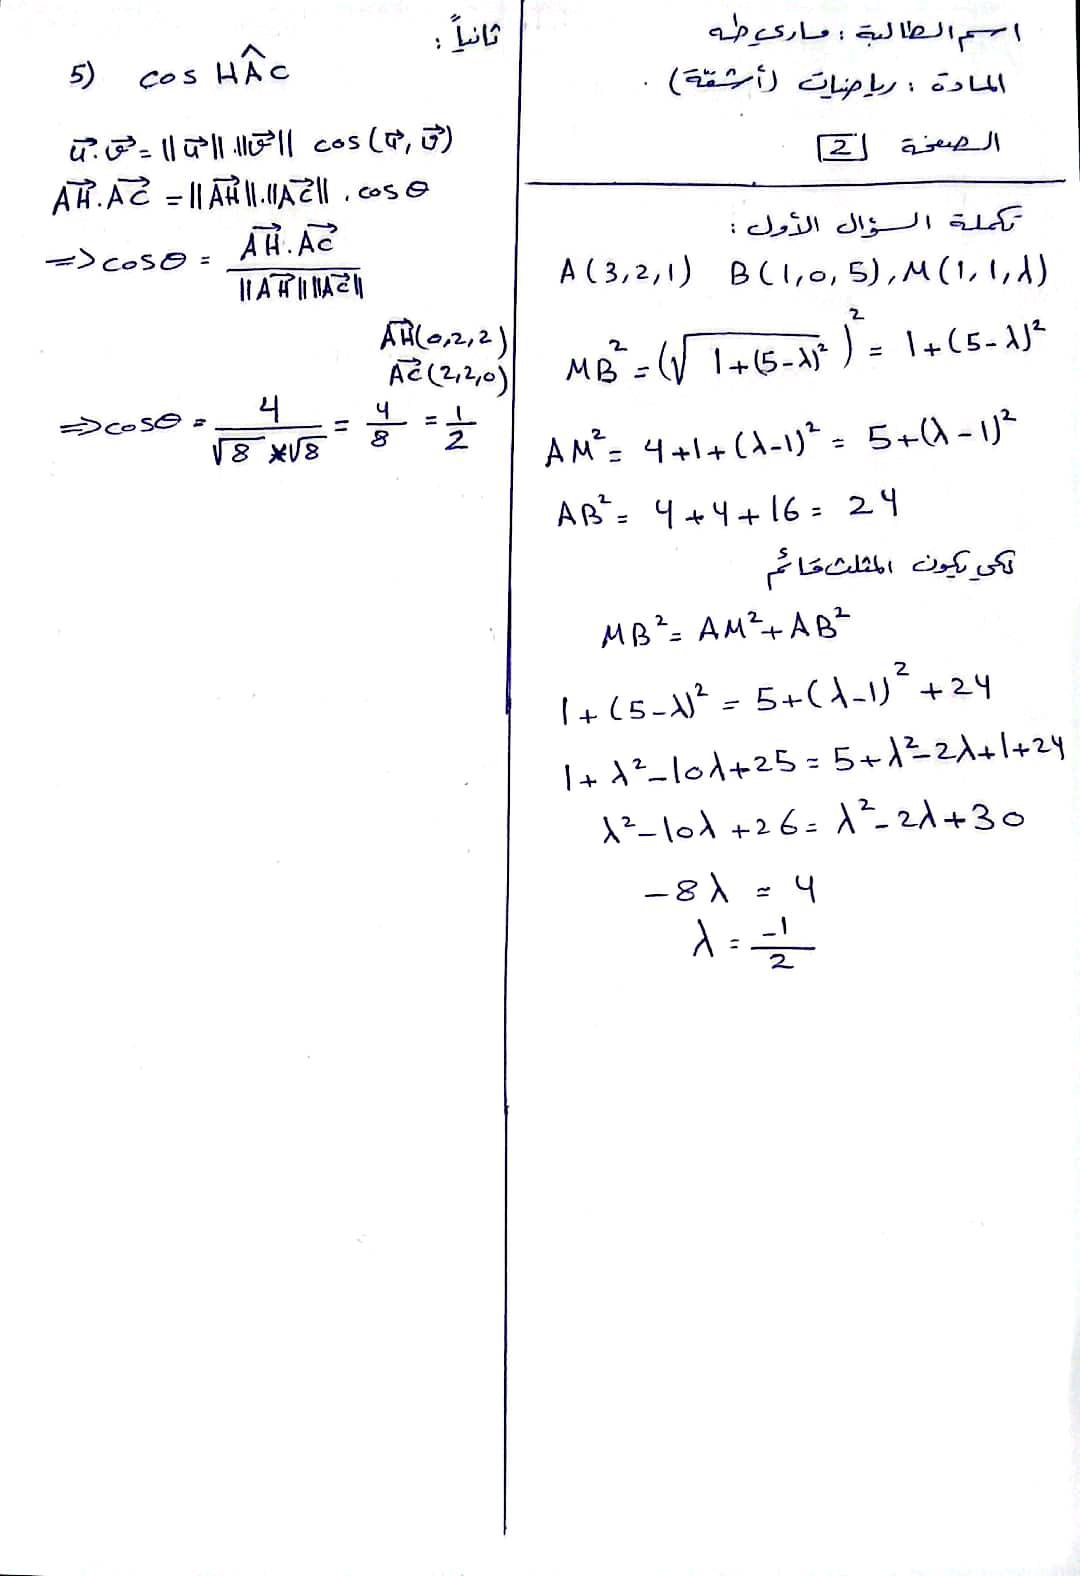 اسم الطالبة : ماري طه
المادة : رياضيات (أشعّة) .
الصفحة [2]
تكملة السؤال الأول :
A(3,2,1) B(1,0,5), M(1,1,λ)
MB² = (√(1+(5-λ)²))² = 1+(5-λ)²
AM² = 4+1+(λ-1)² = 5+(λ-1)²
AB² = 4+4+16 = 24
لكي يكون المثلث قائم
MB² = AM²+AB²
1+(5-λ)² = 5+(λ-1)²+24
1+λ²-10λ+25 = 5+λ²-2λ+1+24
λ²-10λ+26 = λ²-2λ+30
-8λ = 4
λ = -1/2
ثانياً :
5) cos HÂC
u⃗.v⃗ = ||u⃗||.||v⃗|| cos(u⃗,v⃗)
AH⃗.AC⃗ = ||AH⃗||.||AC⃗|| . cos θ
=> cos θ = AH⃗.AC⃗ / ||AH⃗|| ||AC⃗||
AH⃗(0,2,2)
AC⃗(2,2,0)
=> cos θ = 4/(√8 * √8) = 4/8 = 1/2